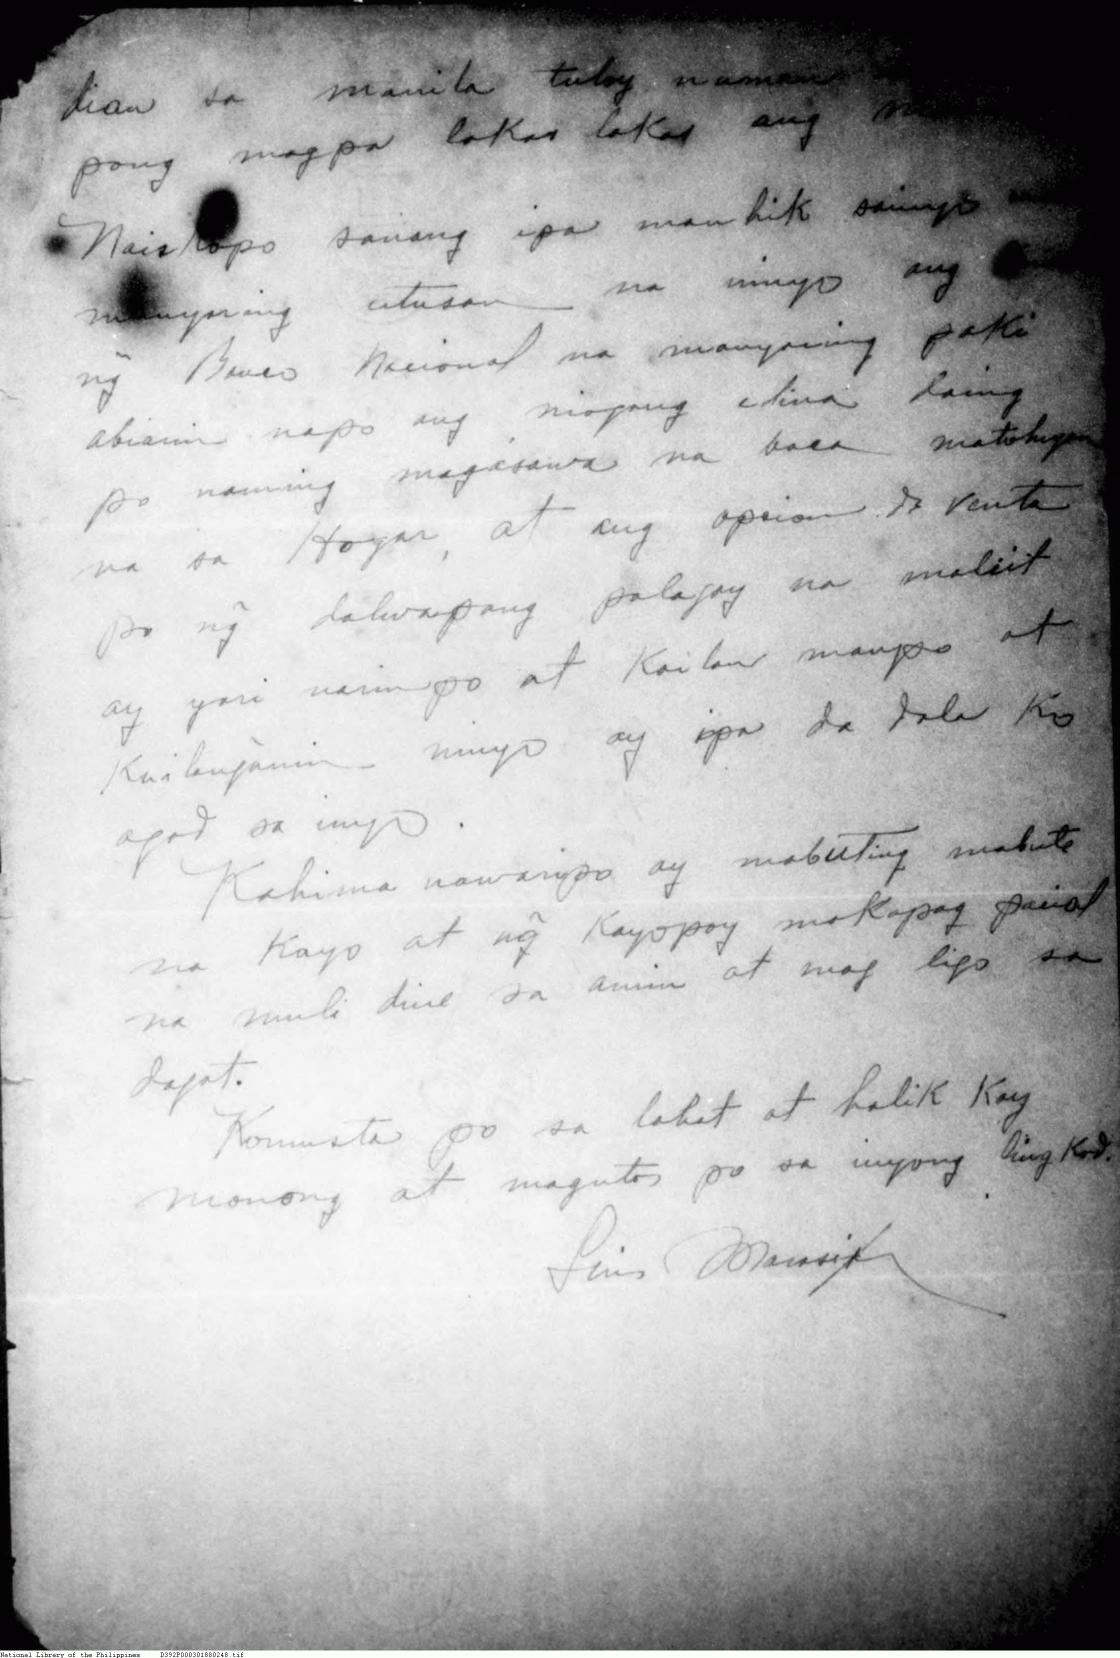 dian sa manila tuloy naman
pong magpa lakas lakas ang
Nais kopo sanang ipa manhik sainyo
manyaring utusan na ninyo ang
ng̃ Banco Nacional na manyaring paki
abianin napo ang niogang edina daing
po naming magasawa na baca matohugan
na sa Hogar, at ang opcion de venta
po ng̃ dalwapang palagay na maliit
ay yari narinpo at Kailan manpo at
Kailang̃anin ninyo ay ipa da dala Ko
agad sa inyo.
Kahima nawaripo ay mabuting mabute
na Kayo at ng̃ Kayopoy makapag pacial
na muli dine sa amin at mag ligo sa
dagat.
Komusta po sa lahat at halik Kay
monong at magutos po sa inyong lingkod.
Luis
National Library of the Philippines D392P000301880248.tif